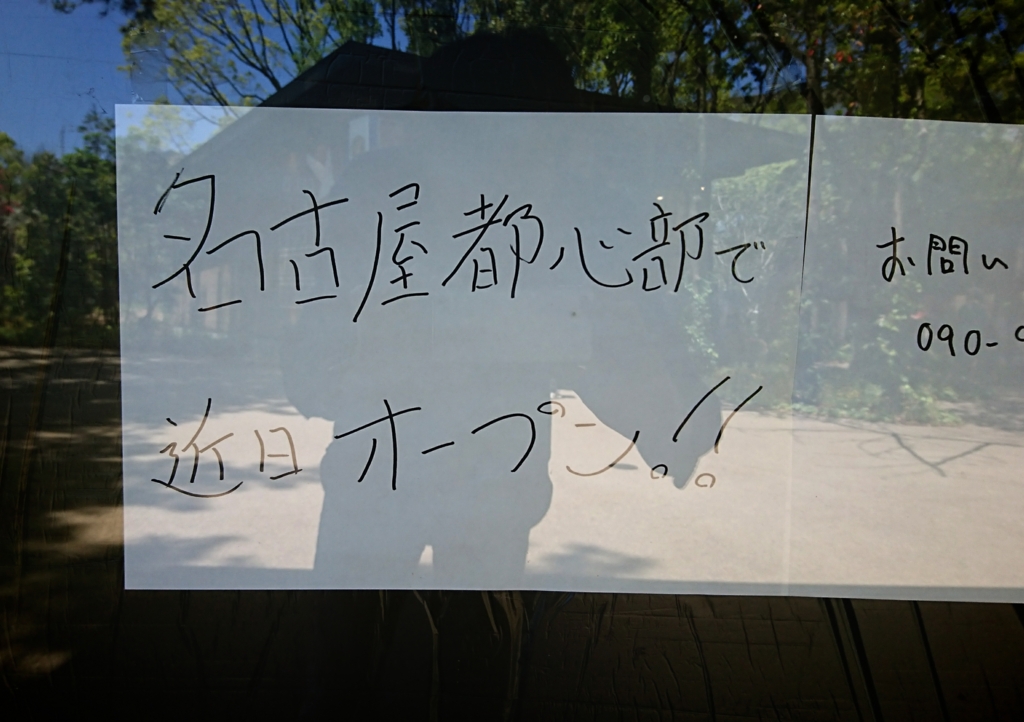 名古屋都心部で
近日オープン!!
お問い
090-9